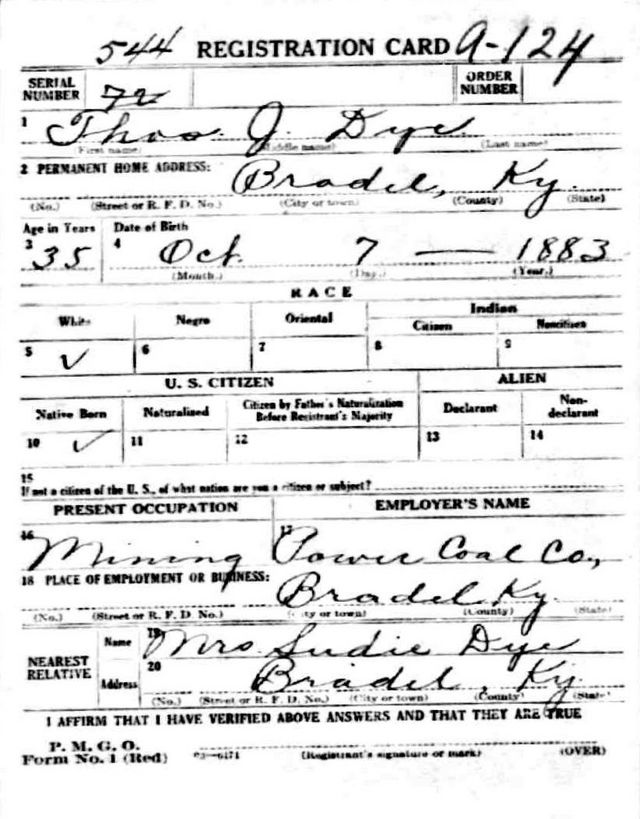 544 REGISTRATION CARD A-124
SERIAL NUMBER 72 ORDER NUMBER
1 Thos. J. Dye
(First name) (Middle name) (Last name)
2 PERMANENT HOME ADDRESS: Bradel, Ky.
(No.) (Street or R. F. D. No.) (City or town) (County) (State)
Age in Years Date of Birth
3 35 4 Oct. 7 — 1883
(Month.) (Day.) (Year.)
RACE
White Negro Oriental Indian
Citizen Noncitizen
5 ✓ 6 7 8 9
U. S. CITIZEN ALIEN
Native Born Naturalized Citizen by Father's Naturalization Before Registrant's Majority Declarant Non-declarant
10 ✓ 11 12 13 14
15
If not a citizen of the U. S., of what nation are you a citizen or subject?
PRESENT OCCUPATION EMPLOYER'S NAME
16 Mining 17 Power Coal Co,
18 PLACE OF EMPLOYMENT OR BUSINESS: Bradel Ky.
(No.) (Street or R. F. D. No.) (City or town) (County) (State)
NEAREST RELATIVE Name 19 Mrs Sudie Dye
Address 20 Bradel, Ky.
(No.) (Street or R. F. D. No.) (City or town) (County) (State)
I AFFIRM THAT I HAVE VERIFIED ABOVE ANSWERS AND THAT THEY ARE TRUE
P. M. G. O.
Form No. 1 (Red) 03—6171 (Registrant's signature or mark) (OVER)